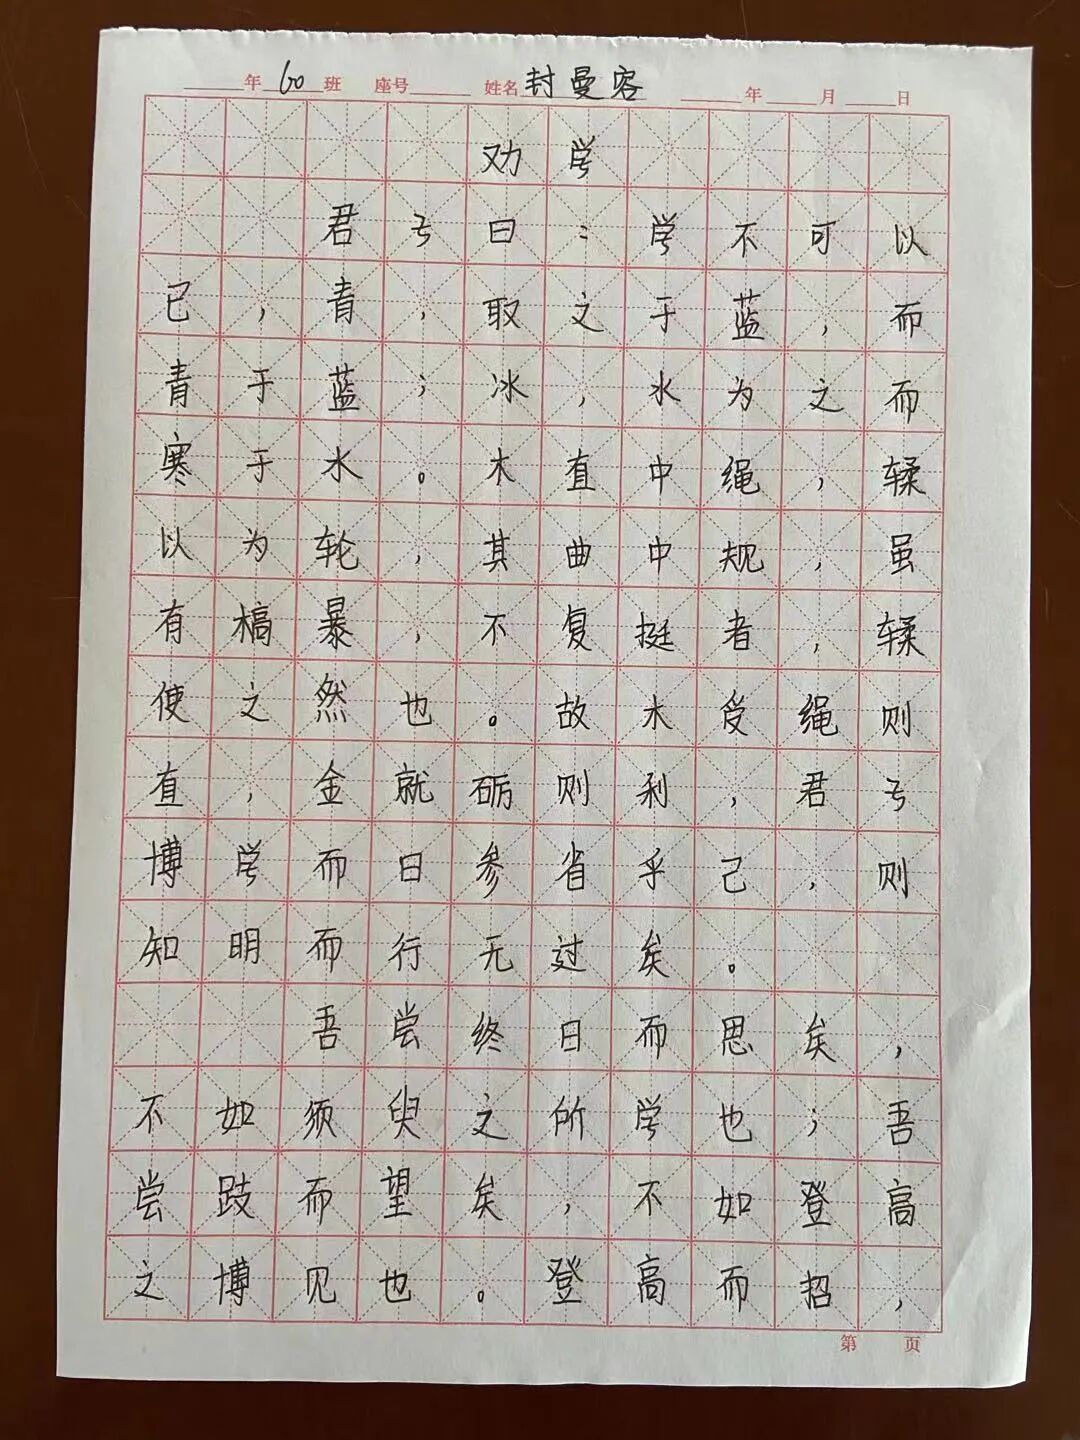 年 60 班 座号 姓名 封曼容 年 月 日
劝学
君子曰：学不可以
已，青，取之于蓝，而
青于蓝；冰，水为之而
寒于水。木直中绳，輮
以为轮，其曲中规，虽
有槁暴，不复挺者，輮
使之然也。故木受绳则
直，金就砺则利，君子
博学而日参省乎己，则
知明而行无过矣。
吾尝终日而思矣，
不如须臾之所学也；吾
尝跂而望矣，不如登高
之博见也。登高而招，
第 页